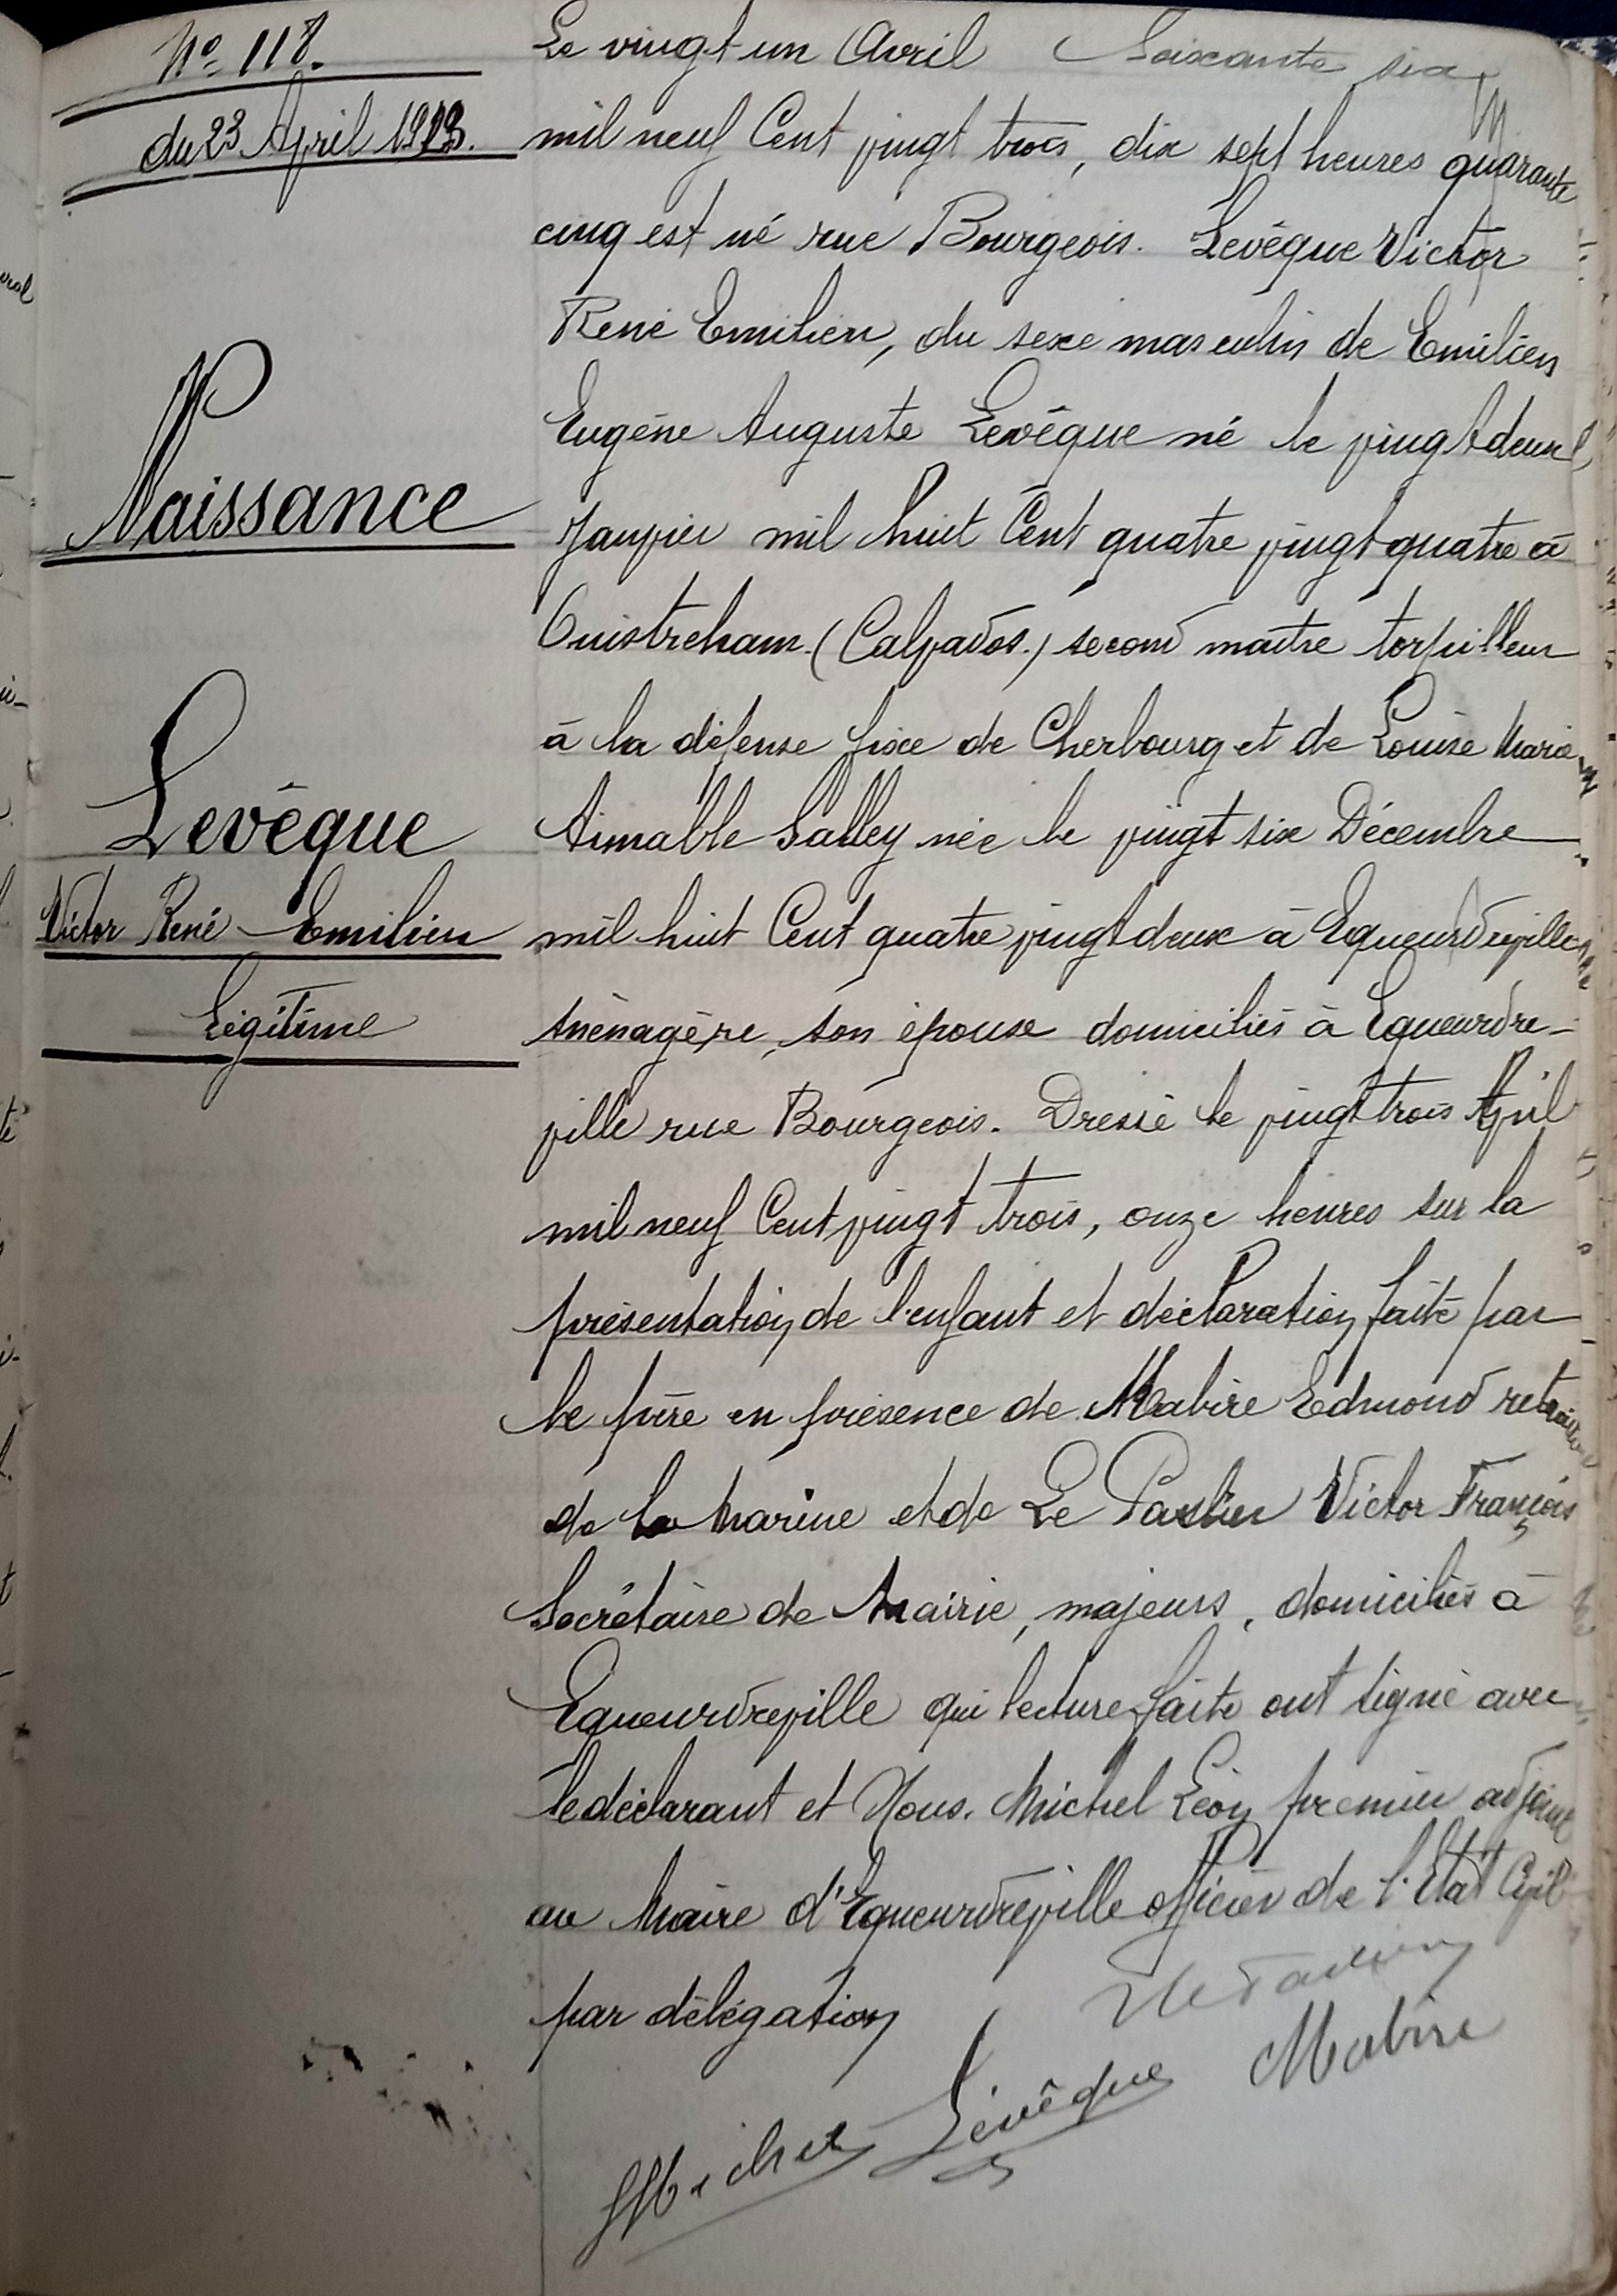 N° 118.
du 23 Avril 1923.
Naissance
Levêque
Victor René Emilien
Légitime
Soixante six
Le vingt un Avril
mil neuf Cent vingt trois, dix sept heures quarante
cinq est né rue Bourgeois. Levêque Victor
René Emilien, du sexe masculin de Emilien
Eugène Auguste Levêque né le vingt deux
Janvier mil huit Cent quatre vingt quatre à
Ouistreham (Calvados.) second maître torpilleur
à la défense fixe de Cherbourg et de Louise Marie
Aimable Salley née le vingt six Décembre
mil huit Cent quatre vingt deux à Equeurdreville
ménagère, son épouse domiciliés à Equeurdre-
ville rue Bourgeois. Dressé le vingt trois Avril
mil neuf Cent vingt trois, onze heures sur la
présentation de l'enfant et déclaration faite par
le père en présence de Mabire Edmond retraité
de la marine et de Le Paslier Victor François
Secrétaire de Mairie, majeurs, domiciliés à
Equeurdreville qui lecture faite ont signé avec
le déclarant et Nous. Michel Léon premier adjoint
au Maire d'Equeurdreville officier de l'Etat Civil
par délégation
Mabire
Levêque
Michel